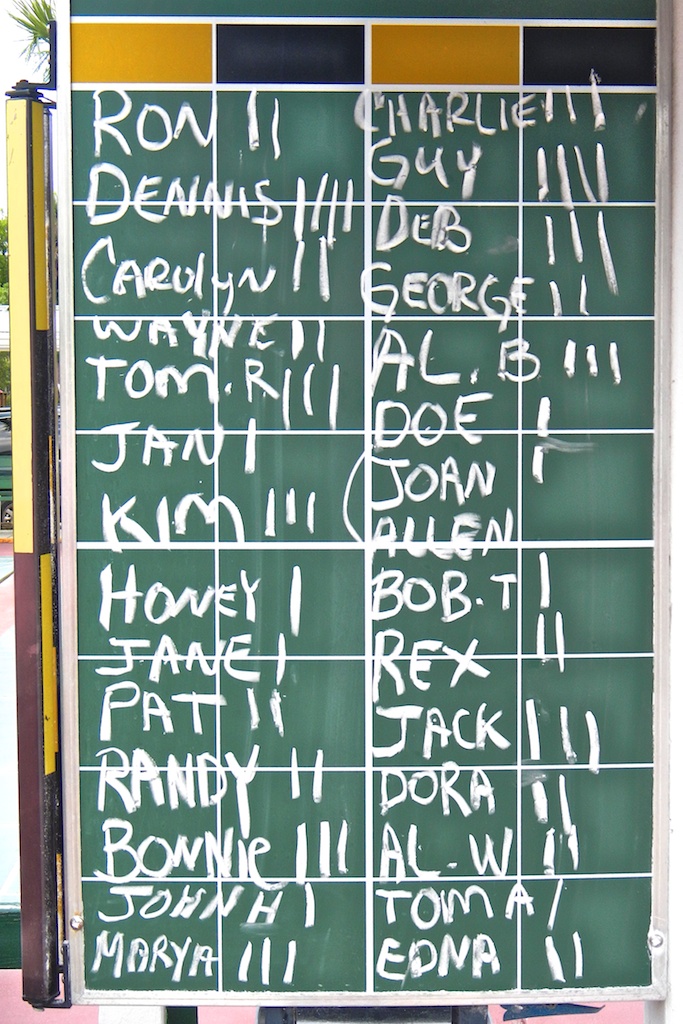 RON II
DENNIS IIII
CAROLYN II
WAYNE II
TOM.R. III
JAN I
KIM III
HONEY I
JANE I
PAT II
RANDY II
BONNIE III
JOHN H I
MARYA III
CHARLIE III
GUY IIII
DEB III
GEORGE II
AL. B III
DOE I
JOAN I
ALLEN
BOB.T I
REX II
JACK III
DORA II
AL.W II
TOM A I
EDNA II